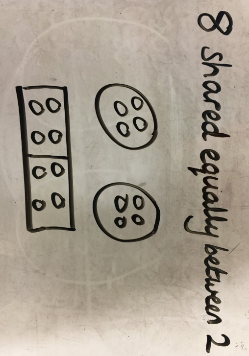 8 shared equally between 2